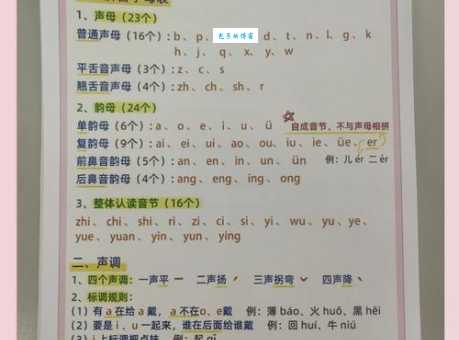 1、声母（23个）
普通声母（16个）：b、p、 d、t、n、l、g、k
包子的博客
h、j、q、x、y、w
平舌音声母（3个）：z、c、s
翘舌音声母（4个）：zh、ch、sh、r
2、韵母（24个）
单韵母（6个）：a、o、e、i、u、ü 自成音节，不与声母相拼
复韵母（9个）：ai、ei、ui、ao、ou、iu、ie、üe、er
前鼻音韵母（5个）：an、en、in、un、ün 例：儿 ér 二 èr
后鼻音韵母（4个）：ang、eng、ing、ong
3、整体认读音节（16个）
zhi、chi、shi、ri、zi、ci、si、yi、wu、yu、ye、
yue、yuan、yin、yun、ying
二、声调
1、四个声调：一声平 ˉ 二声扬 ˊ 三声拐弯 ˇ 四声降 ˋ
2、标调规则：
(1) 有a在给a戴，a不在o、e戴 例：薄 báo、火 huǒ、黑 hēi
(2) 要是i、u一起来，谁在后面给谁戴 例：回 huí、牛 niú